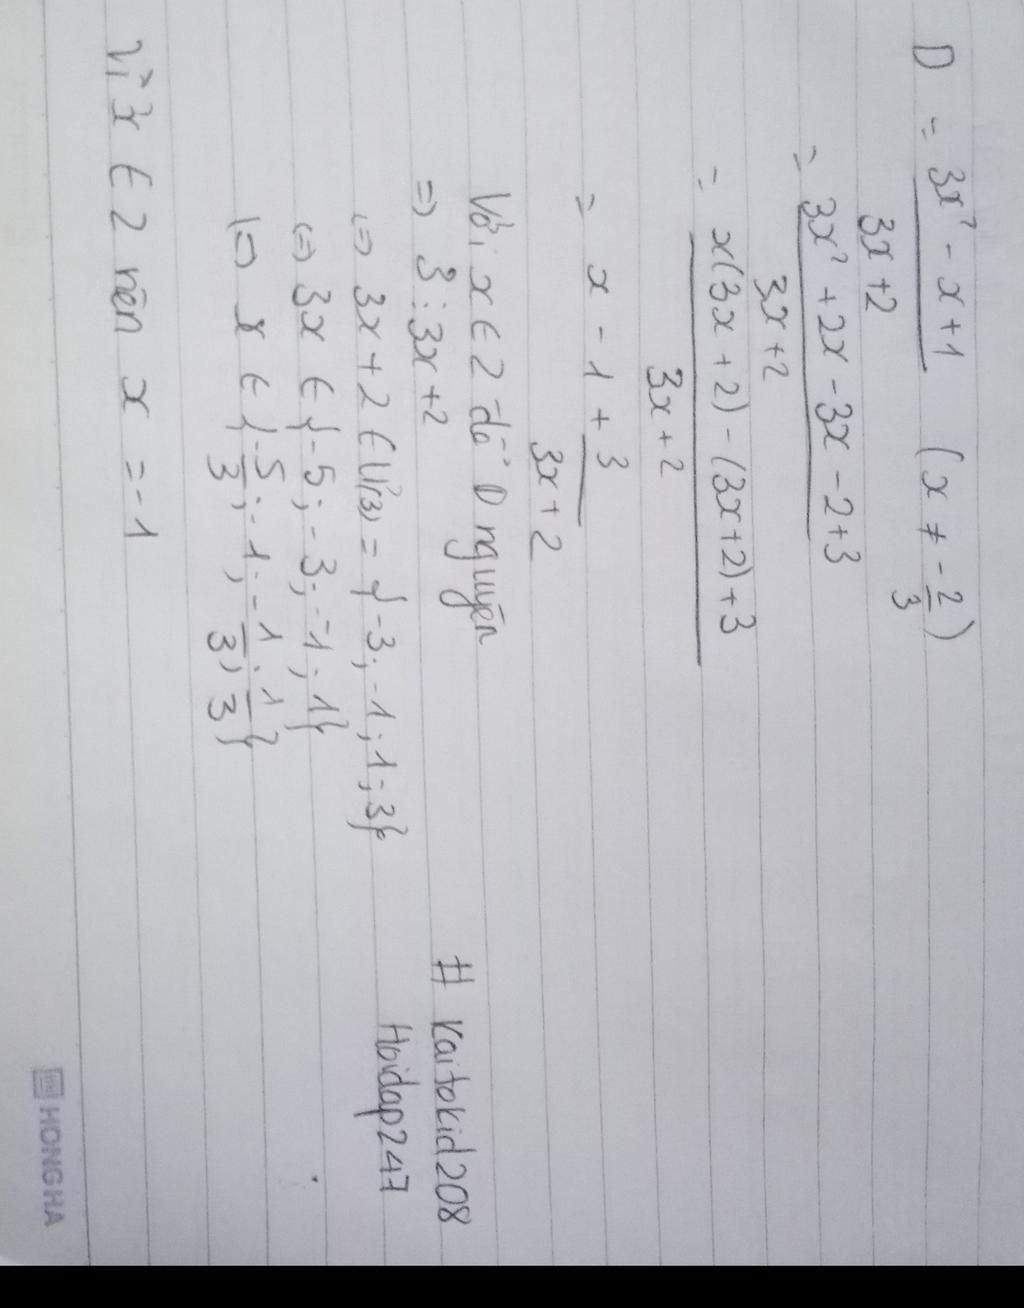 D = (3x² - x + 1)/(3x + 2) (x ≠ -2/3)
= (3x² + 2x - 3x - 2 + 3)/(3x + 2)
= (x(3x + 2) - (3x + 2) + 3)/(3x + 2)
= x - 1 + 3/(3x + 2)
Với x ∈ Z để D nguyên
=> 3 ⋮ 3x + 2
<=> 3x + 2 ∈ Ư(3) = {-3; -1; 1; 3}
<=> 3x ∈ {-5; -3; -1; 1}
<=> x ∈ {-5/3; -1; -1/3; 1/3}
Vì x ∈ Z nên x = -1
# Kaitokid208
Hoidap247
HONG HA